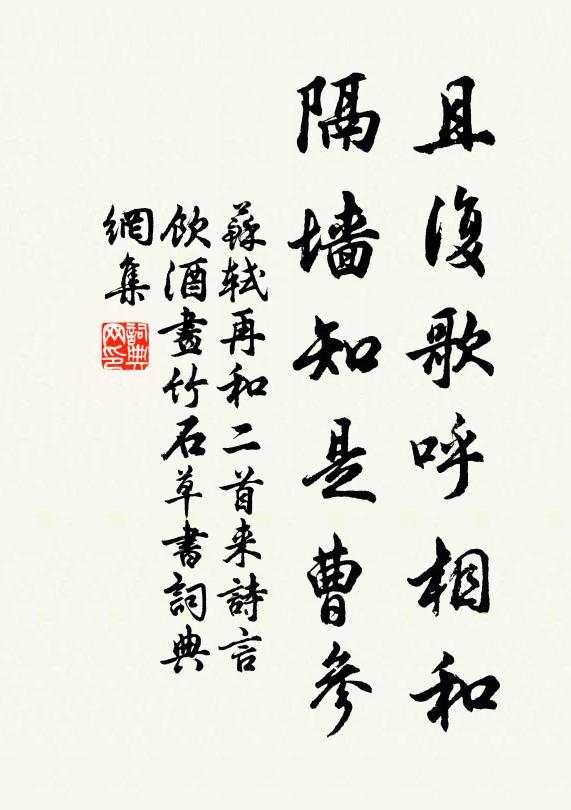 且復歌呼相和
隔墻知是曹參
蘇軾再和二首来詩言
飲酒畫竹石草書詞典
網集
詞典网印